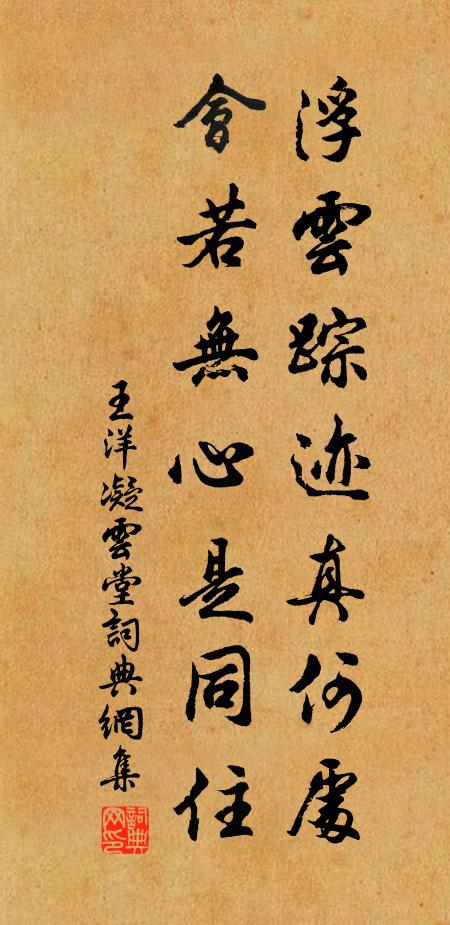 浮雲踪迹真何處
會若無心是同住
王洋凝雲堂詞典網集
詞典网印